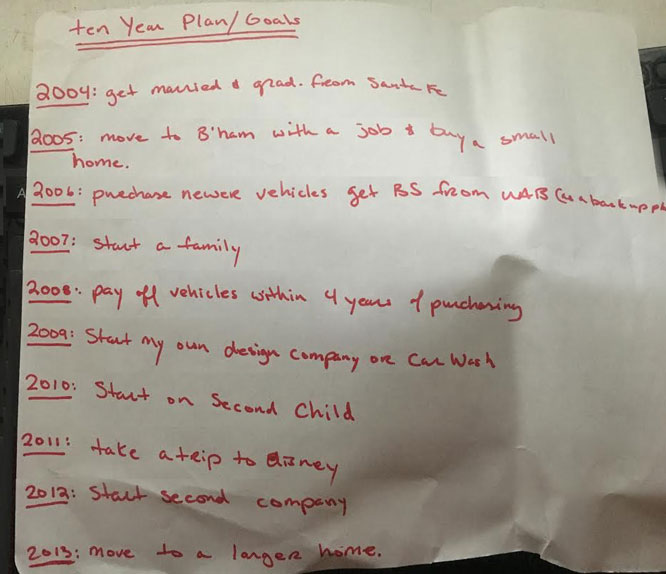 ten Year Plan/Goals
2004: get married & grad. from Santa Fe
2005: move to B'ham with a job & buy a small
home.
2006: purchase newer vehicles get BS from UAB (as a backup
2007: Start a family
2008: pay off vehicles within 4 years of purchasing
2009: Start my own design company or Car Wash
2010: Start on Second Child
2011: take a trip to Disney
2012: Start second company
2013: move to a larger home.